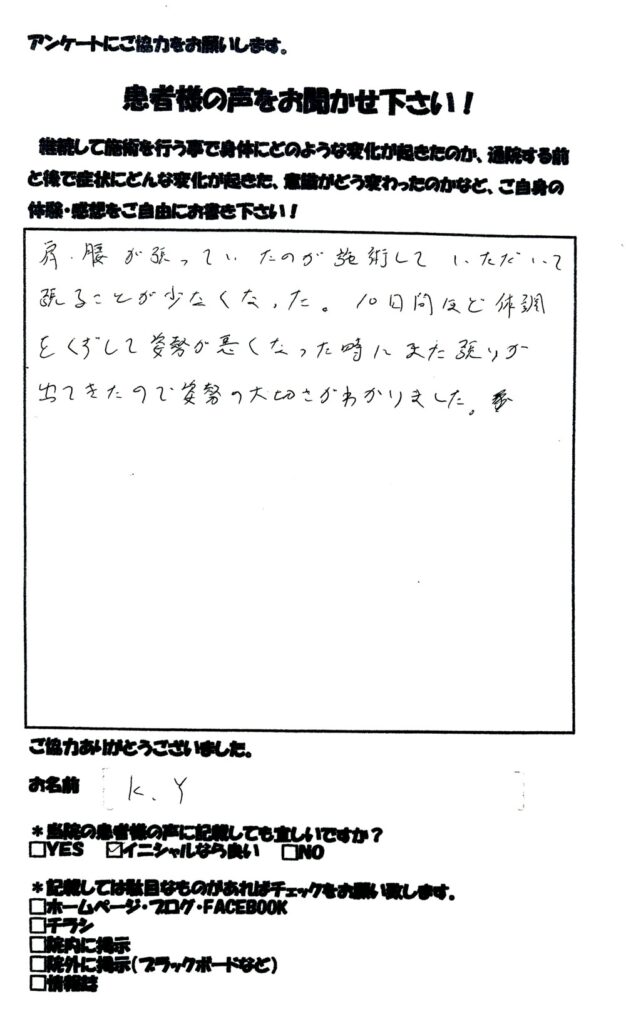 アンケートにご協力をお願いします。
患者様の声をお聞かせ下さい！
継続して施術を行う事で身体にどのような変化が起きたのか、通院する前
と後で症状にどんな変化が起きた、意識がどう変わったのかなど、ご自身の
体験・感想をご自由にお書き下さい！
肩・腰が張っていたのが施術していただいて
張ることが少なくなった。10日間ほど体調
をくずして姿勢が悪くなった時にまた張りが
出てきたので姿勢の大切さがわかりました。
ご協力ありがとうございました。
お名前 K.Y
＊当院の患者様の声に記載しても宜しいですか？
□YES ☑イニシャルなら良い □NO
＊記載しては駄目なものがあればチェックをお願い致します。
□ホームページ・ブログ・FACEBOOK
□チラシ
□院内に掲示
□院外に掲示（ブラックボードなど）
□情報誌